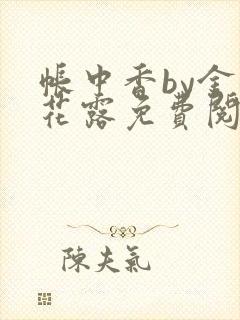 帳中香by金
花露免費閱
陳夫氣